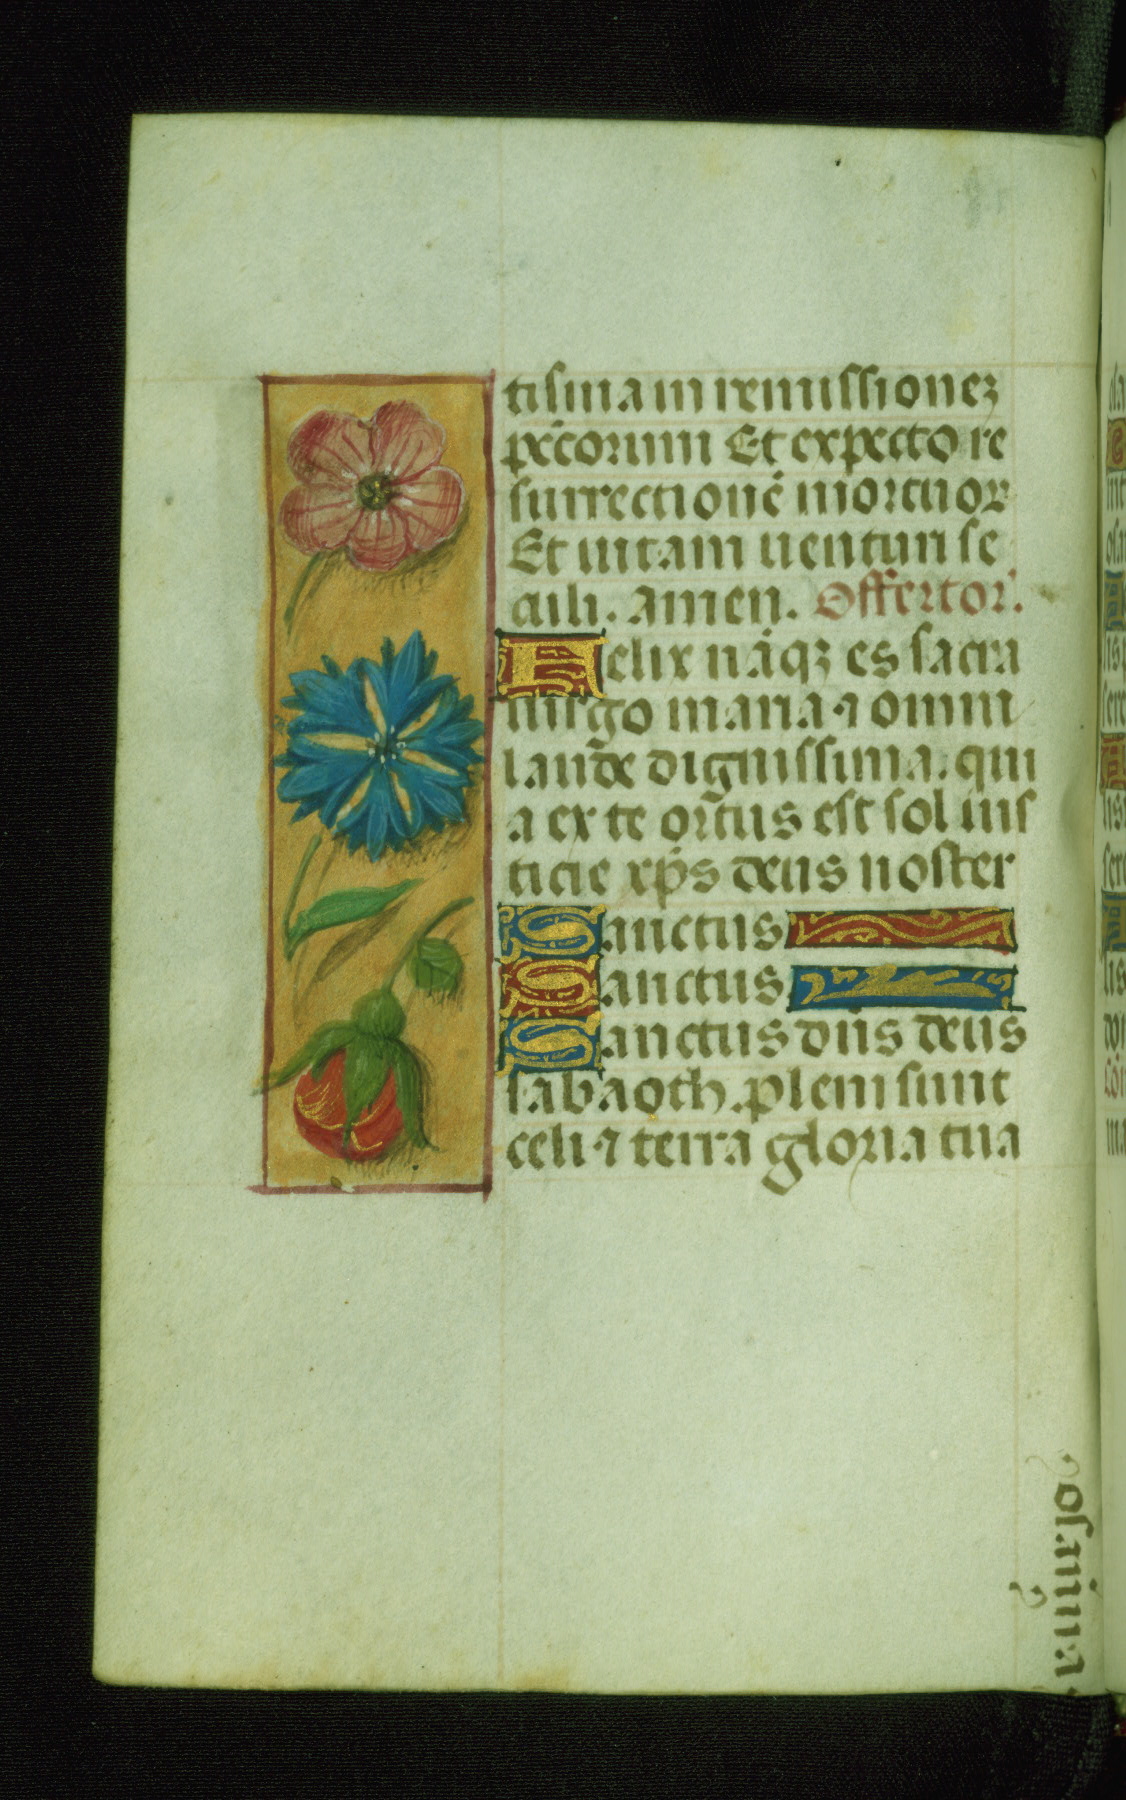 tisma in remissionez
pc̄corum Et expecto re
surrectionē mortuoꝝ
Et uitam uenturi se
culi. amen. Offertor'.
Felix nāqꝫ es sacra
uirgo maria ⁊ omni
laud̄e dignissima. qui
a ex te ort̄us est sol ius
ticie xp̄s deus noster
Sanctus
Sanctus
Sanctus dn̄s deus
sabaoth. pleni sunt
celi ⁊ terra gloria tua
osanna.